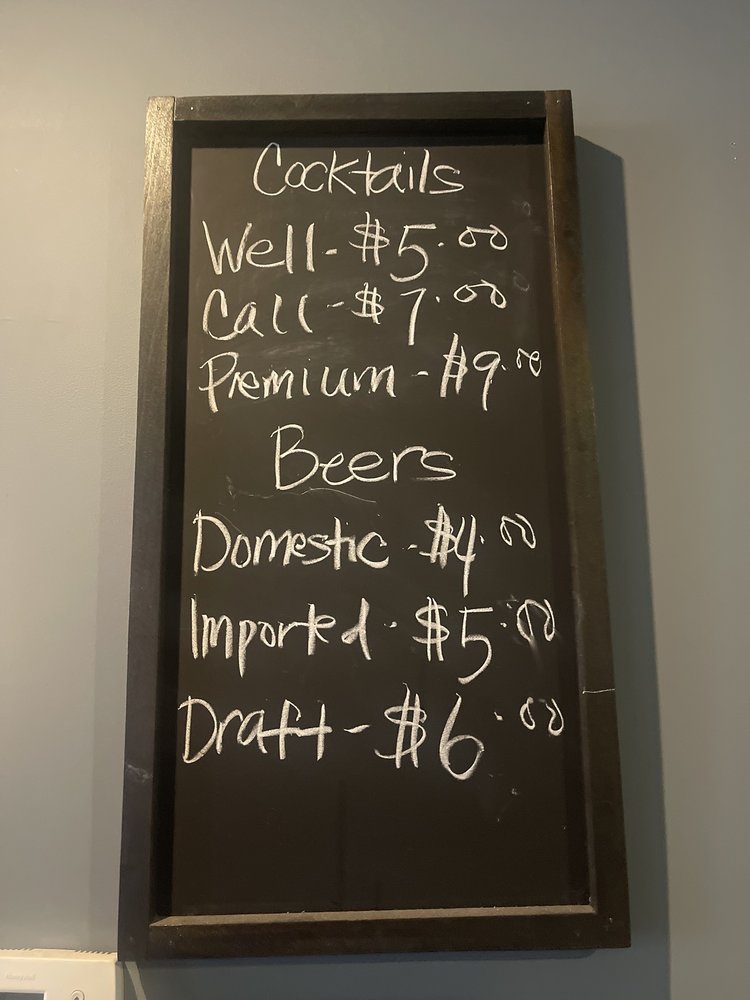 Cocktails
Well - $5.00
Call - $7.00
Premium - $9.00
Beers
Domestic - $4.00
Imported - $5.00
Draft - $6.00
Honeywell